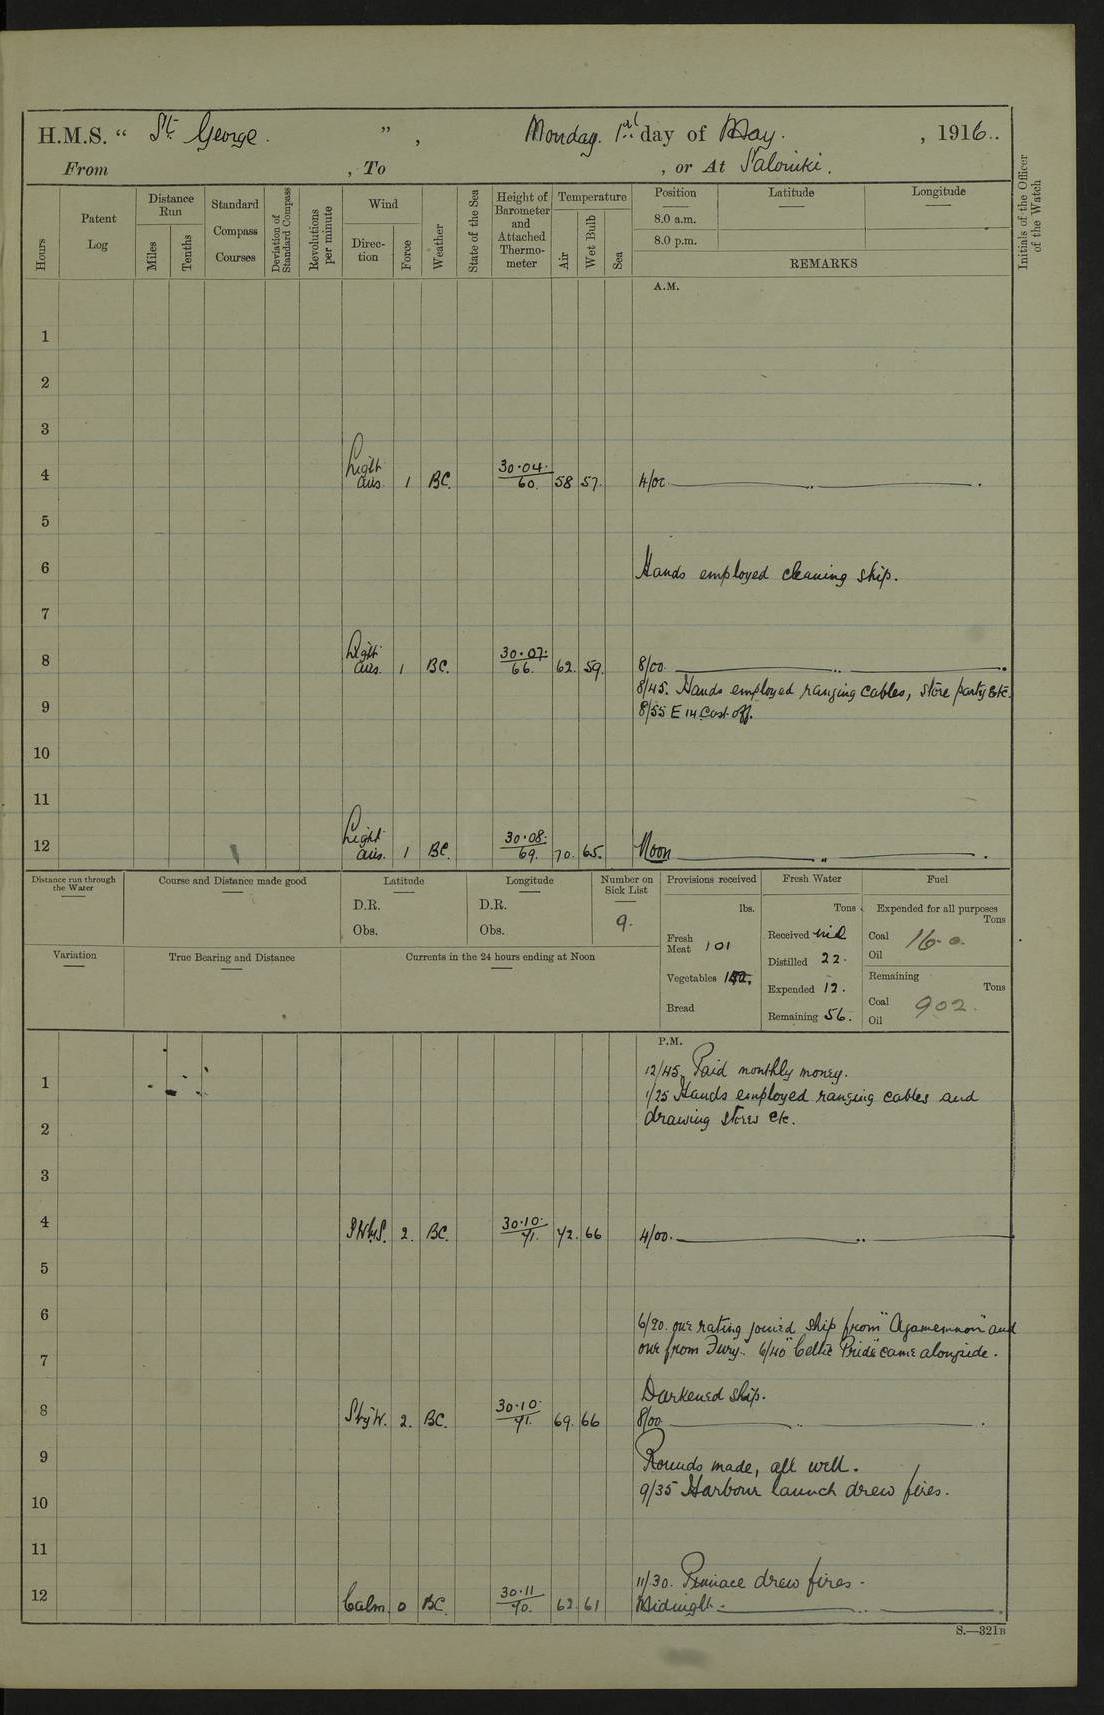 H.M.S. “ St. George. ” , Monday. 1st day of May. , 1916.
From , To , or At Salonika.
Hours
Patent Log
Distance Run
Miles
Tenths
Standard Compass Courses
Deviation of Standard Compass
Revolutions per minute
Wind
Direction
Force
Weather
State of the Sea
Height of Barometer and Attached Thermometer
Temperature
Air
Wet Bulb
Sea
Position
8.0 a.m.
8.0 p.m.
Latitude
Longitude
REMARKS
Initials of the Officer of the Watch
A.M.
1
2
3
4 Light airs. 1 BC. 30.04. 60. 58 57. 4/00.
5
6 Hands employed cleaning ship.
7
8 Light airs. 1 BC. 30.07. 66. 62. 59. 8/00.
8/45. Hands employed ranging cables, store party etc.
9 8/55 E 14 Cast off.
10
11
12 Light airs. 1 BC. 30.08. 69. 70. 65. Noon
Distance run through the Water
Course and Distance made good
Latitude
D.R.
Obs.
Longitude
D.R.
Obs.
Number on Sick List
9.
Provisions received
lbs.
Fresh Meat 101
Vegetables
Bread
Fresh Water
Tons
Received nil
Distilled 22.
Expended 12.
Remaining 56.
Fuel
Expended for all purposes
Tons
Coal 16.0.
Oil
Remaining
Tons
Coal 902.
Oil
Variation
True Bearing and Distance
Currents in the 24 hours ending at Noon
P.M.
12/45. Paid monthly money.
1 1/25 Hands employed ranging cables and
2 drawing stores etc.
3
4 SWbyS. 2. BC. 30.10. 71. 72. 66 4/00.
5
6 6/20. one rating joined ship from "Agamemnon" and
7 one from Fury. 6/40 "Celtic Pride" came alongside.
Darkened ship.
8 SbyW. 2. BC. 30.10. 71. 69. 66 8/00
9 Rounds made, all well.
10 9/35 Harbour launch drew fires.
11
11/30. Pinnace drew fires.
12 Calm. 0 BC. 30.11 70. 62. 61 Midnight.
S.—321B